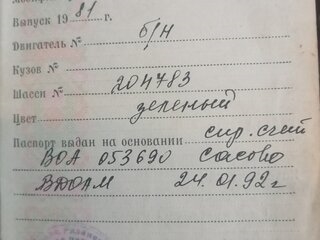 Выпуск 19 81 г.
Двигатель № б/н
Кузов №
Шасси № 204783
Цвет зеленый
Паспорт выдан на основании спр. счет
ВОА 053690 Сасово
ВДОАМ 24.01.92 г